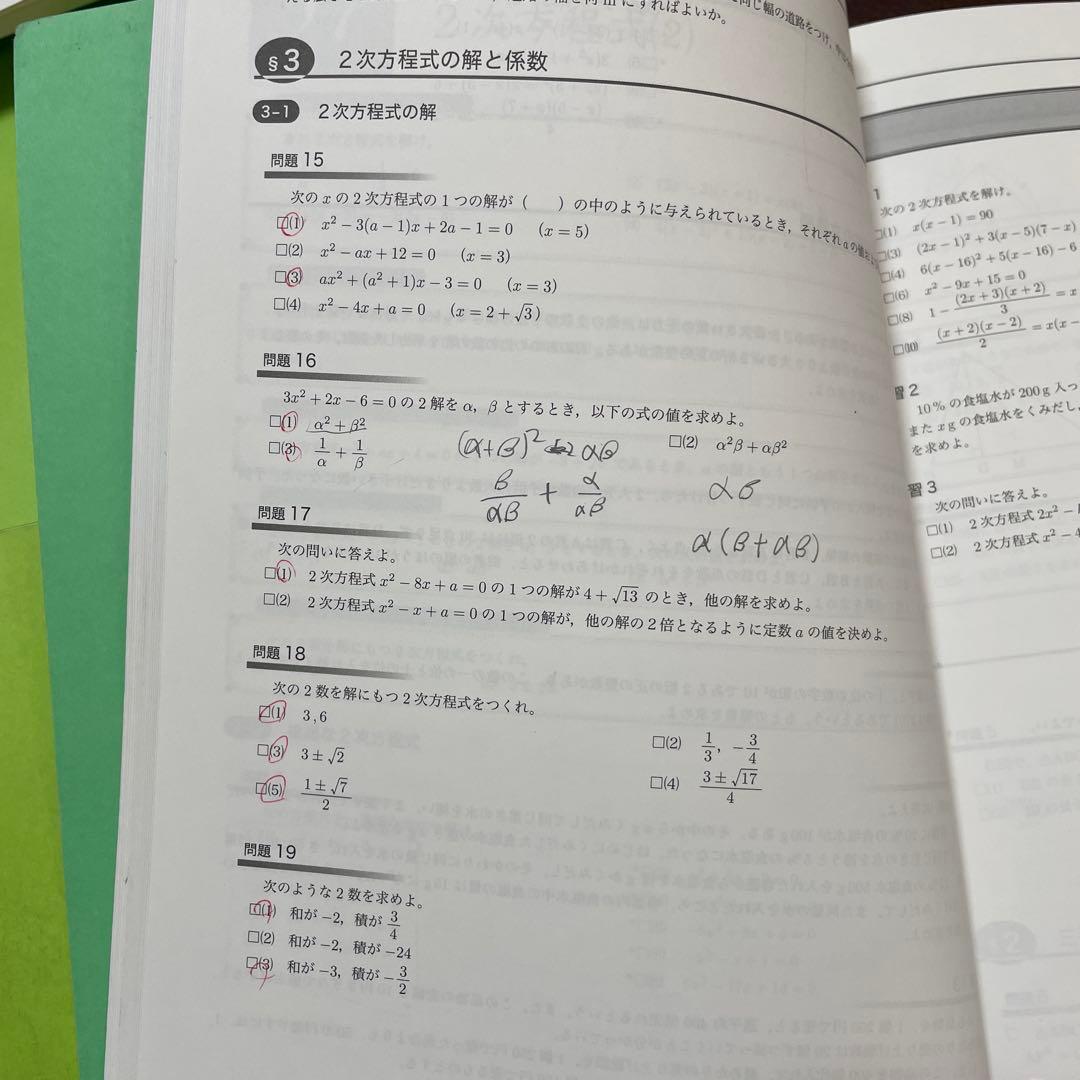 すればよいか。
同じ幅の道路をつけ,
§3 2次方程式の解と係数
3-1 2次方程式の解
問題 15
次の x の 2 次方程式の 1 つの解が（　　）の中のように与えられているとき，それぞれ a の値
□(1) x² − 3(a − 1)x + 2a − 1 = 0 (x = 5)
□(2) x² − ax + 12 = 0 (x = 3)
□(3) ax² + (a² + 1)x − 3 = 0 (x = 3)
□(4) x² − 4x + a = 0 (x = 2 + √3)
問題 16
3x² + 2x − 6 = 0 の 2 解を α，β とするとき，以下の式の値を求めよ。
□(1) α² + β²
□(2) α²β + αβ²
□(3) 1/α + 1/β
(α+β)² −2 αβ
β/αβ + α/αβ
αβ
α(β+αβ)
問題 17
次の問いに答えよ。
□(1) 2 次方程式 x² − 8x + a = 0 の 1 つの解が 4 + √13 のとき，他の解を求めよ。
□(2) 2 次方程式 x² − x + a = 0 の 1 つの解が，他の解の 2 倍となるように定数 a の値を決めよ。
問題 18
次の 2 数を解にもつ 2 次方程式をつくれ。
□(1) 3, 6
□(2) 1/3, −3/4
□(3) 3 ± √2
□(4) (3 ± √17)/4
□(5) (1 ± √7)/2
問題 19
次のような 2 数を求めよ。
□(1) 和が −2，積が 3/4
□(2) 和が −2，積が −24
□(3) 和が −3，積が −3/2
1
次の 2 次方程式を解け。
□(1) x(x − 1) = 90
□(3) (2x − 1)² + 3(x − 5)(7 − x)
□(4) 6(x − 16)² + 5(x − 16) − 6
□(6) x² − 9x + 15 = 0
□(8) 1 − (2x + 3)(x + 2)/3 = x
□(10) (x + 2)(x − 2)/2 = x(x −
習 2
10 % の食塩水が 200 g 入っ
また x g の食塩水をくみだし，
を求めよ。
習 3
次の問いに答えよ。
□(1) 2 次方程式 2x² −
□(2) 2 次方程式 x² − 4